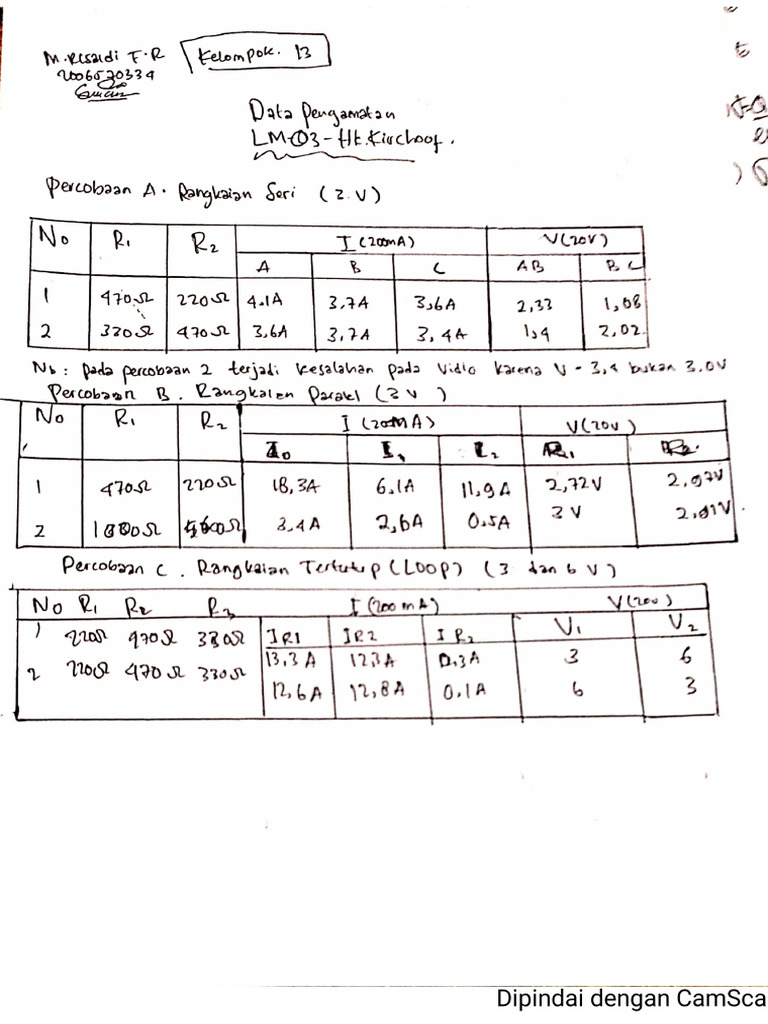 M. Resaldi F. R
Kelompok. 13
2006570334
Data Pengamatan
LM-03-Hk. Kirchoof.
Percobaan A. Rangkaian Seri (3.V)
No R1 R2 I (200mA) V(20V)
A B C AB BC
1 470Ω 220Ω 4.1A 3.7A 3,6A 2,33 1,08
2 330Ω 470Ω 3,6A 3,7A 3,4A 1,4 2,02
Nb: pada percobaan 2 terjadi kesalahan pada vidio karena V = 3,4 bukan 3.0V
Percobaan B. Rangkaian Paralel (3V)
No R1 R2 I (20mA) V(20V)
I0 I1 I2 R1 R2
1 470Ω 220Ω 18,3A 6,1A 11,9A 2,72V 2,97V
2 1000Ω 5600Ω 3,4A 2,6A 0,5A 3V 2,91V
Percobaan C. Rangkaian Tertutup (LOOP) (3 dan 6 V)
No R1 R2 R3 I (200 mA) V(20V)
IR1 IR2 IR3 V1 V2
1 220Ω 470Ω 330Ω 13,3A 12,3A 0,3A 3 6
2 220Ω 470Ω 330Ω 12,6A 12,8A 0,1A 6 3
Dipindai dengan CamSca